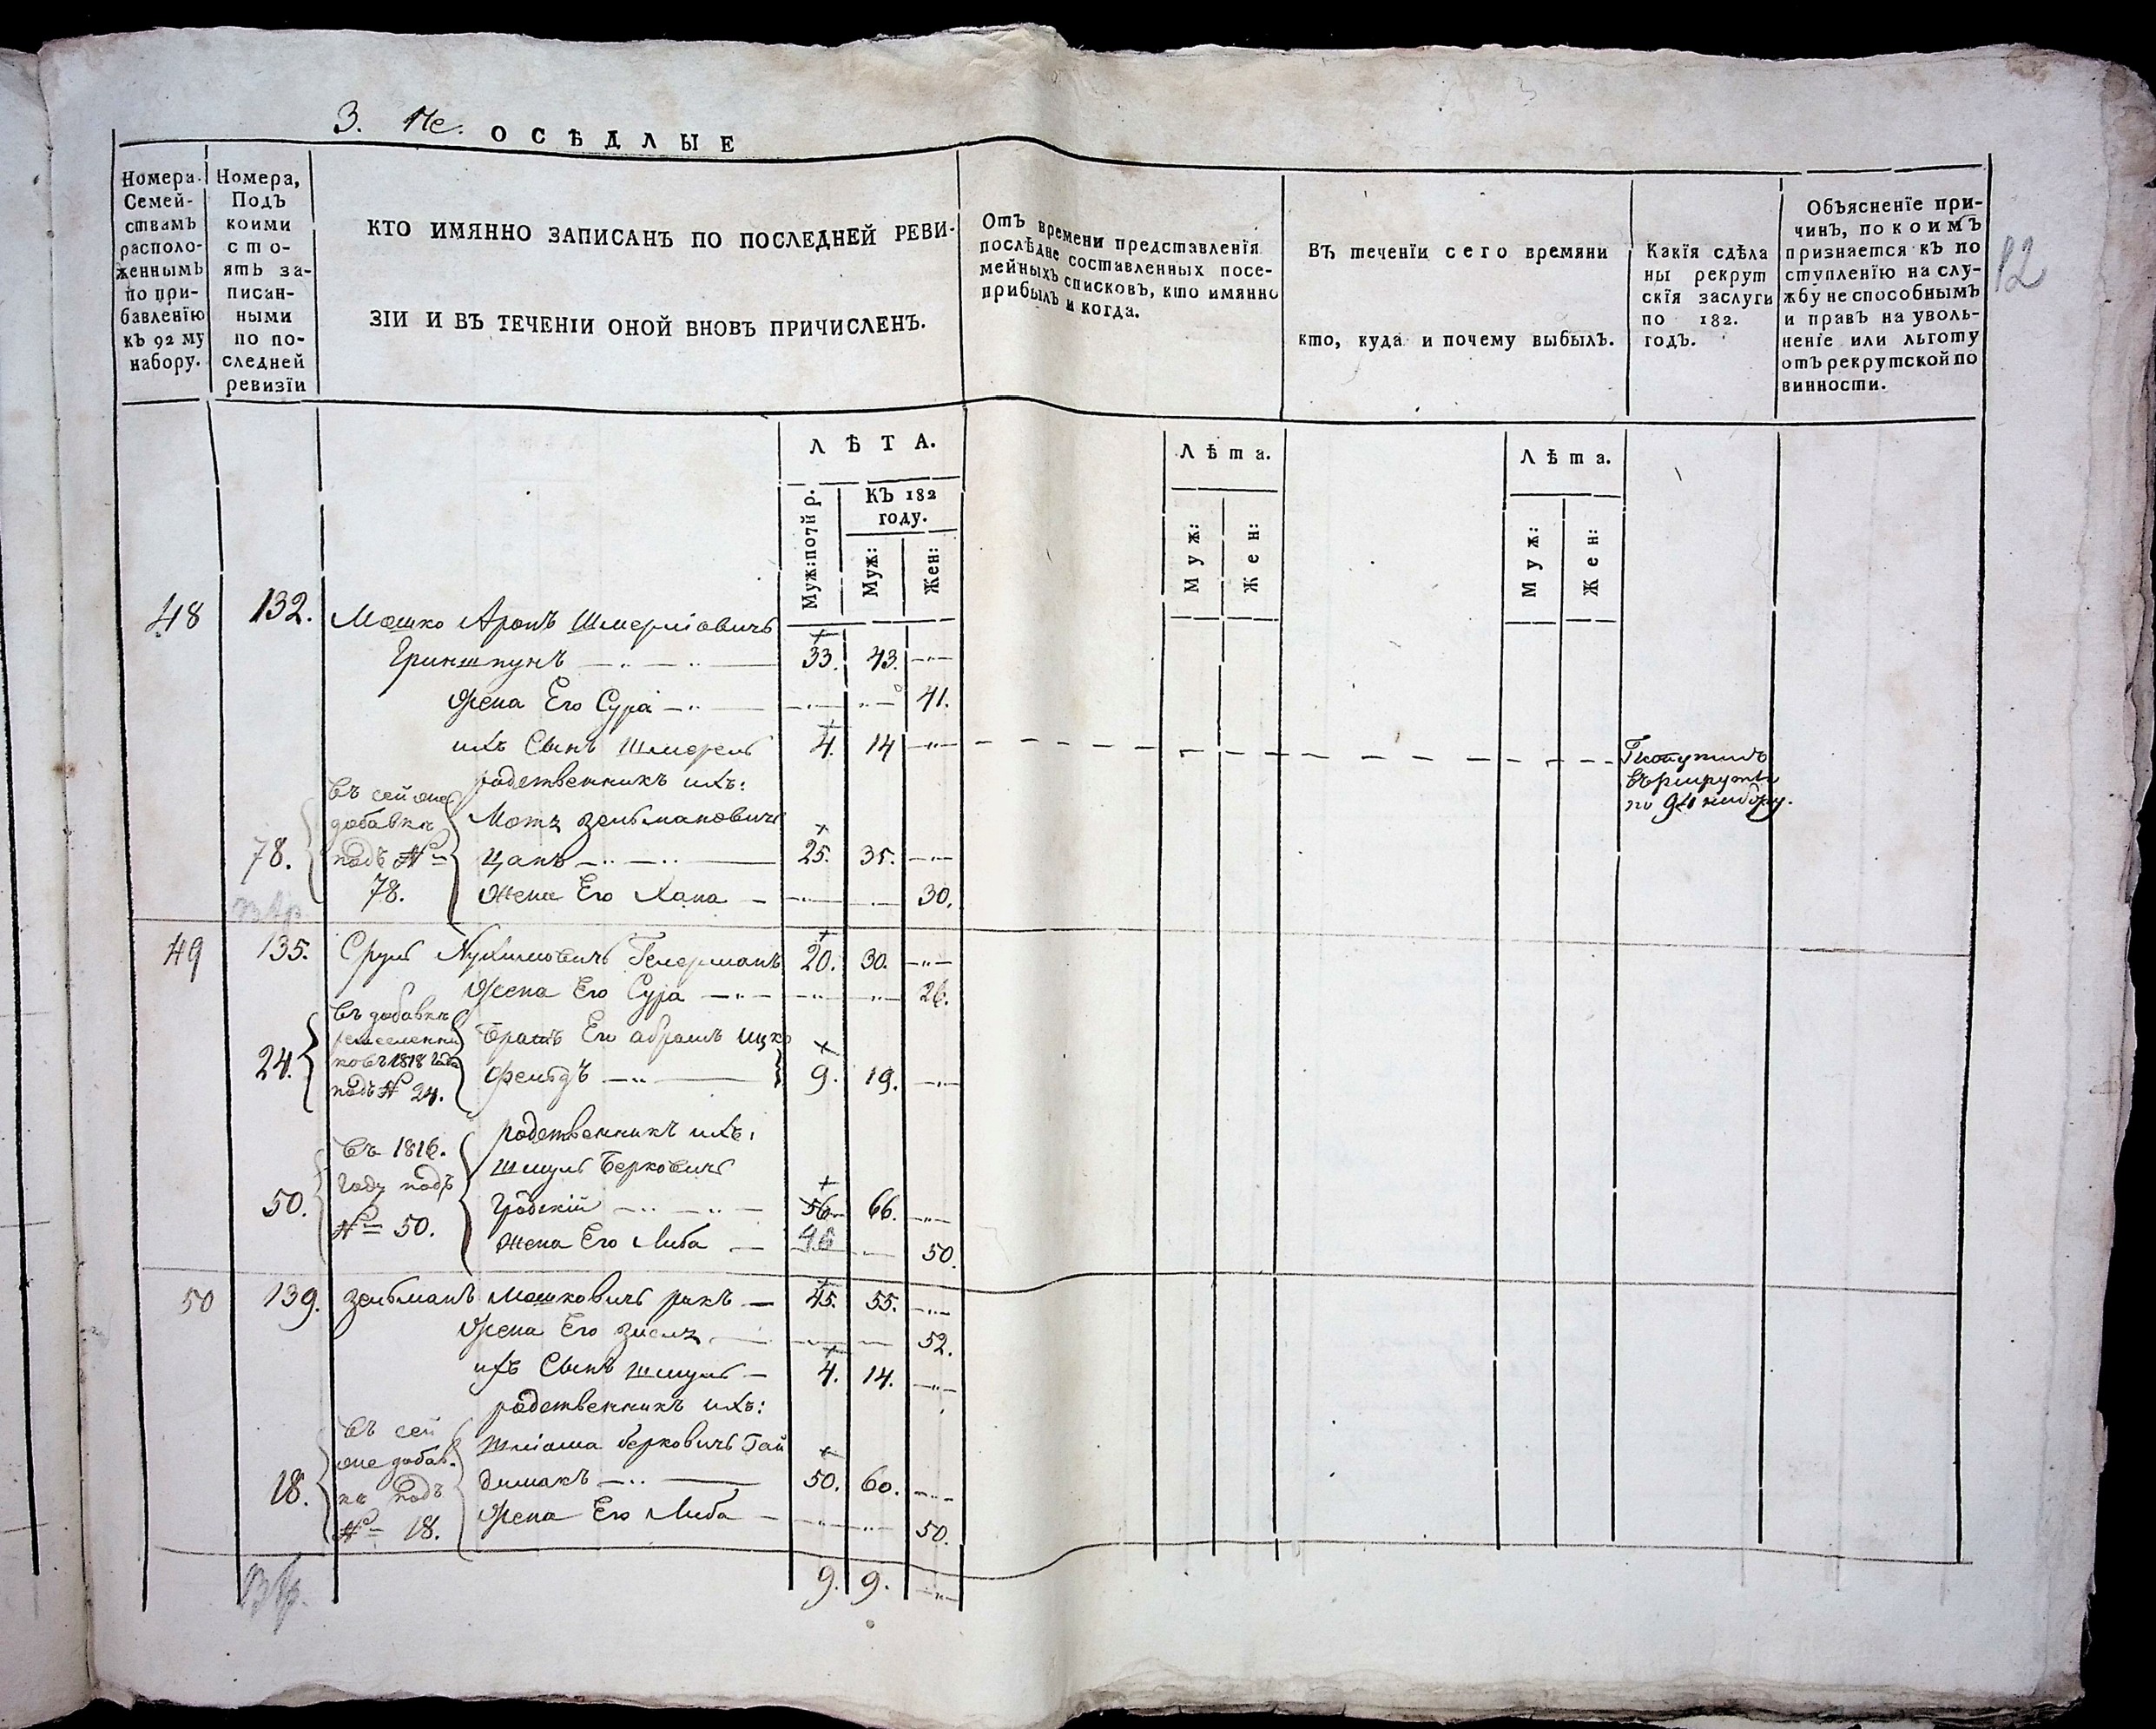 3. Че. ОСѢДЛЫЕ
12
Номера Семей-
ствамъ
располо-
женнымъ
по при-
бавленїю
къ 92 му
набору.
Номера,
Подъ
коими
сто-
ять за-
писан-
ными
по по-
следней
ревизїи
КТО ИМЯННО ЗАПИСАНЪ ПО ПОСЛЕДНЕЙ РЕВИ-
ЗІИ И ВЪ ТЕЧЕНІИ ОНОЙ ВНОВЪ ПРИЧИСЛЕНЪ.
Отъ времени представленїя
послѣдне составленных посе-
мейныхъ списковъ, кто имянно
прибылъ и когда.
Въ теченїи сего времяни
кто, куда и почему выбылъ.
Какїя сдѣла
ны рекрут
скїя заслуги
по 182.
годъ.
Объясненїе при-
чинъ, по коимъ
признается къ по
ступленїю на слу-
жбу не способнымъ
и правъ на уволь-
ненїе или льготу
отъ рекрутской по
винности.
ЛѢТА.
Муж: по 7й р.
КЪ 182
году.
Муж:
Жен:
Лѣта.
Муж:
Жен:
Лѣта.
Муж:
Жен:
48 132. Мошко Аронъ Шмерліовичъ
Гриншпунъ 33. 43.
Жена Его Сура 41.
ихъ Сынъ Шмерель 4. 14
по 91 набору.
родственникъ ихъ:
78. въ сей же добавкѣ подъ № 78. Мотя Зельмановичъ
Цапъ 25. 35.
Жена Его Хана 30.
49 135. Сруль Нухимовичъ Гелерманъ 20. 30.
Жена Его Сура 26.
24. въ добавкѣ
ковъ 1818 года
подъ № 24.
Братъ Его Абрамъ Ицко
Фельдъ 9. 19.
родственникъ ихъ:
50. въ 1816.
году подъ
№ 50.
Шмуль Берковичъ
Гродскій 56 66.
46
Жена Его Либа 50.
50 139. Зельманъ Мошковичъ Ракъ 45. 55.
Жена Его Зисля 52.
ихъ Сынъ Шмуль 4. 14.
родственникъ ихъ:
18. въ сей
же добав-
кѣ подъ
№ 18.
Шліома Берковичъ Гай
димакъ 50. 60.
Жена Его Либа 50.
9. 9.